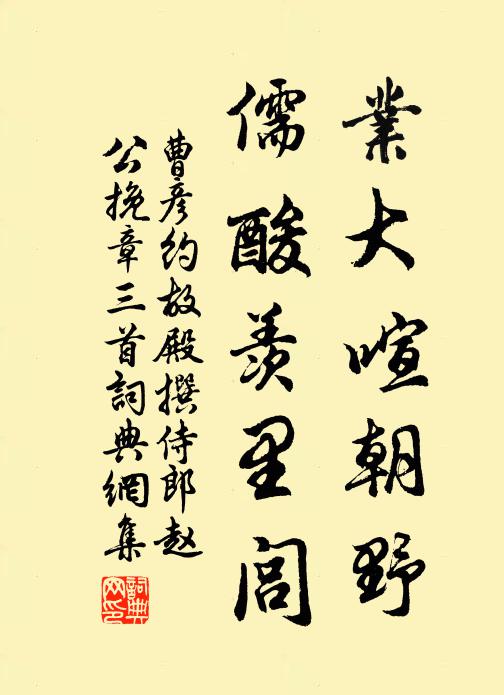 業大喧朝野
儒酸羨里閭
曹彦約故殿撰侍郎赵
公挽章三首詞典網集